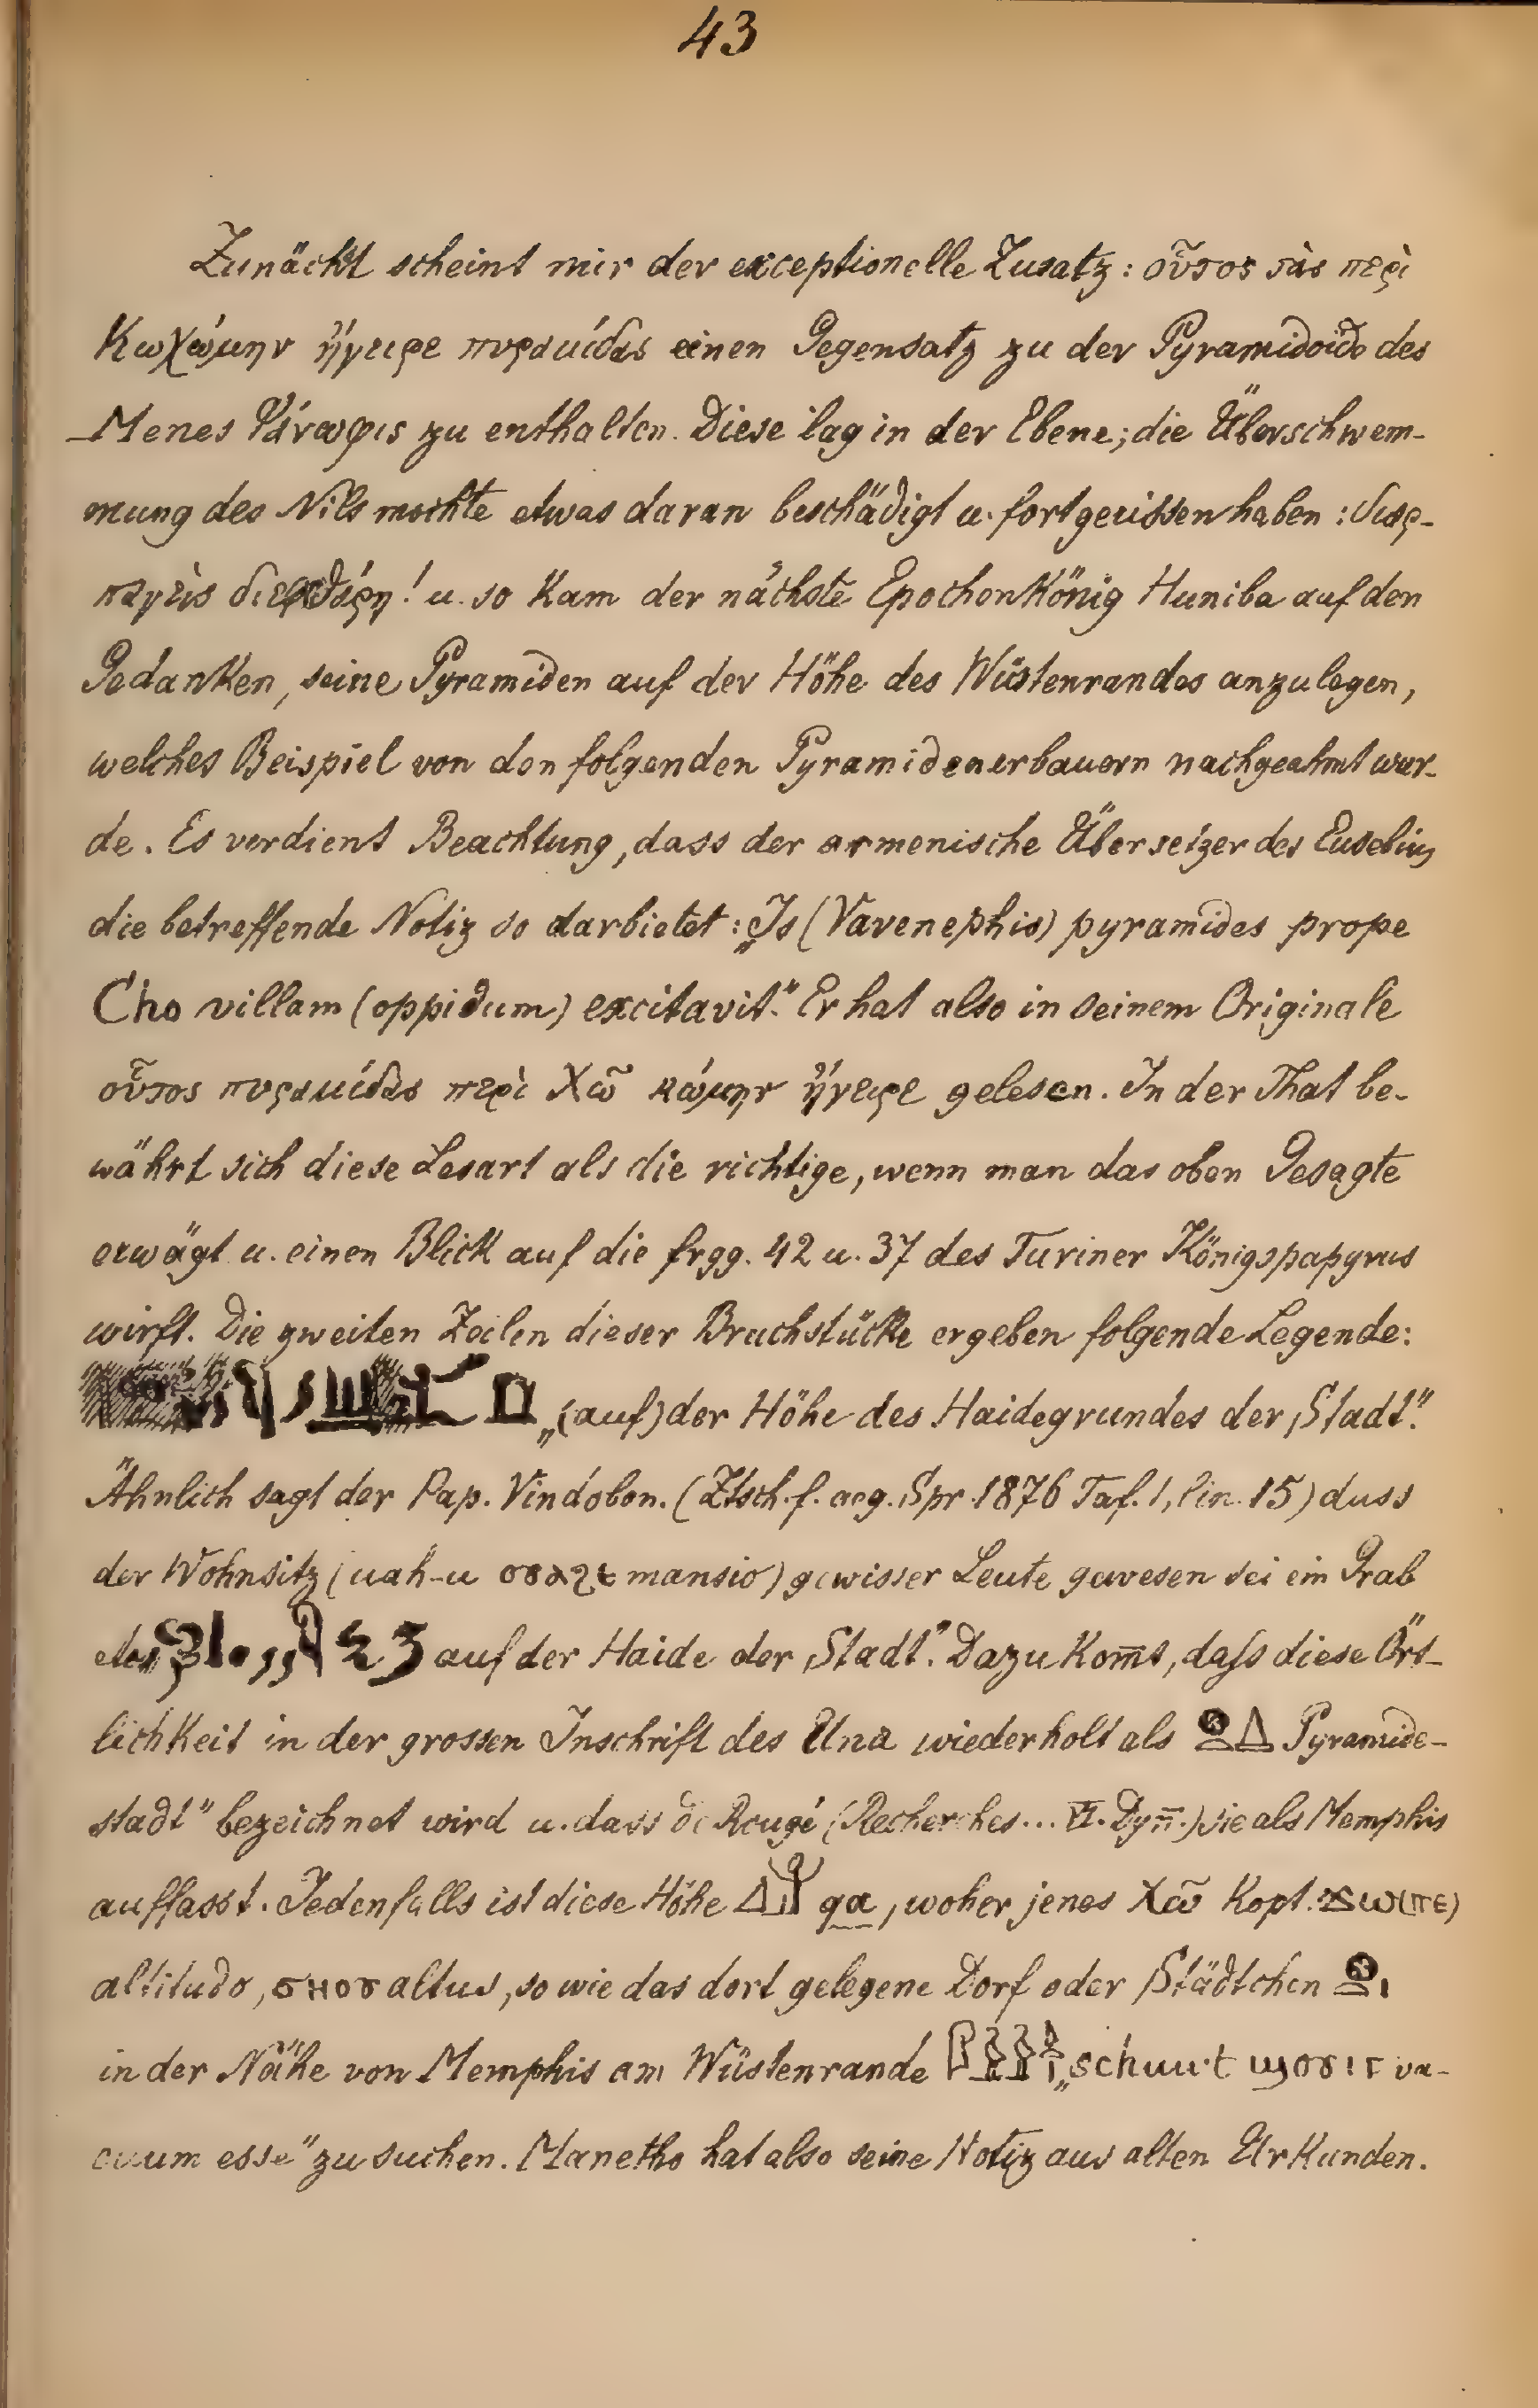 43
Zunächt scheint mir der exceptionelle Zusatz: οὗτος τὰς περὶ
Κωχώμην ἤγειρε πυραμίδας einen Gegensatz zu der Pyramidoide des
Menes Ψάνωφις zu enthalten. Diese lag in der Ebene; die Überschwem-
mung des Nils mochte etwas daran beschädigt u. fortgerissen haben:
u. so kam der nächste Epochenkönig Huniba auf den
Gedanken, seine Pyramiden auf der Höhe des Wüstenrandes anzulegen,
welches Beispiel von den folgenden Pyramidenerbauern nachgeahmt wur-
de. Es verdient Beachtung, dass der armenische Übersetzer des Eusebius
die betreffende Notiz so darbietet: „Is (Vavenephis) pyramides prope
Cho villam (oppidum) excitavit." Er hat also in seinem Originale
οὗτος πυραμίδας περὶ Χῶ κώμην ἤγειρε gelesen. In der That be-
währt sich diese Lesart als die richtige, wenn man das oben Gesagte
erwägt u. einen Blick auf die frgg. 42 u. 37 des Turiner Königspapyrus
wirft. Die zweiten Zeilen dieser Bruchstücke ergeben folgende Legende:
„(auf) der Höhe des Haidegrundes der Stadt".
Ähnlich sagt der Pap. Vindobon. (Ztsch. f. aeg. Spr. 1876 Taf. 1, lin. 15) dass
der Wohnsitz (uah-u ⲟⲩⲁϩⲉ mansio) gewisser Leute gewesen sei ein Grab
auf der Haide der Stadt". Dazu kom̅t, daſs diese Ört-
lichkeit in der grossen Inschrift des Una wiederholt als Pyramide-
stadt" bezeichnet wird u. dass de Rougé (Recherches... VI. Dyn.) sie als Memphis
auffasst. Jedenfalls ist diese Höhe qa, woher jenes Χῶ kopt. ϫⲱ(ⲡⲉ)
altitudo, altus, so wie das dort gelegene Dorf oder Städtchen
in der Nähe von Memphis am Wüstenrande „schuu·t ϣⲟⲩⲓⲧ va-
cuum esse" zu suchen. Manetho hat also seine Notiz aus alten Urkunden.